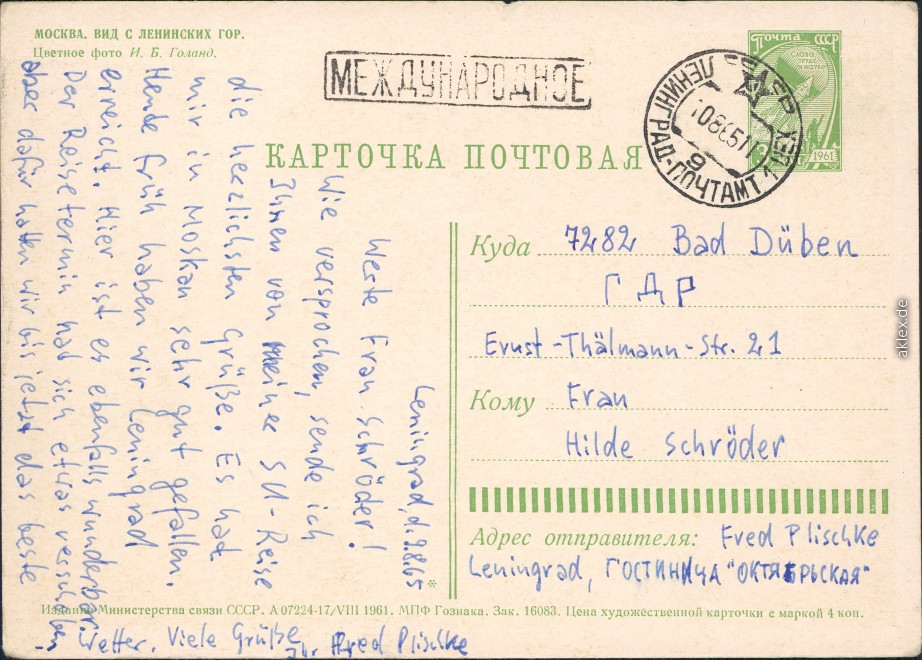 МОСКВА. ВИД С ЛЕНИНСКИХ ГОР.
Цветное фото И. Б. Голанд.
МЕЖДУНАРОДНОЕ
Почта СССР
1961
ЛЕНИНГРАД-ПОЧТАМТ
КАРТОЧКА ПОЧТОВАЯ
Leningrad, d. 9.8.65
Werte Frau Schröder!
Wie versprochen, sende ich
Ihnen von meiner SU-Reise
die herzlichsten Grüße. Es hat
mir in Moskau sehr gut gefallen.
Heute früh haben wir Leningrad
erreicht. Hier ist es ebenfalls wunderbar.
Der Reisetermin hat sich etwas verschoben,
aber dafür hatten wir bis jetzt das beste
Wetter. Viele Grüße
Ihr Fred Plischke
Куда 7282 Bad Düben
ГДР
Ernst-Thälmann-Str. 21
Кому Frau
Hilde Schröder
Адрес отправителя: Fred Plischke
Leningrad, ГОСТИНИЦА "ОКТЯБРЬСКАЯ"
*
Издание Министерства связи СССР. А 07224-17/VIII 1961. МПФ Гознака. Зак. 16083. Цена художественной карточки с маркой 4 коп.
aklex.de